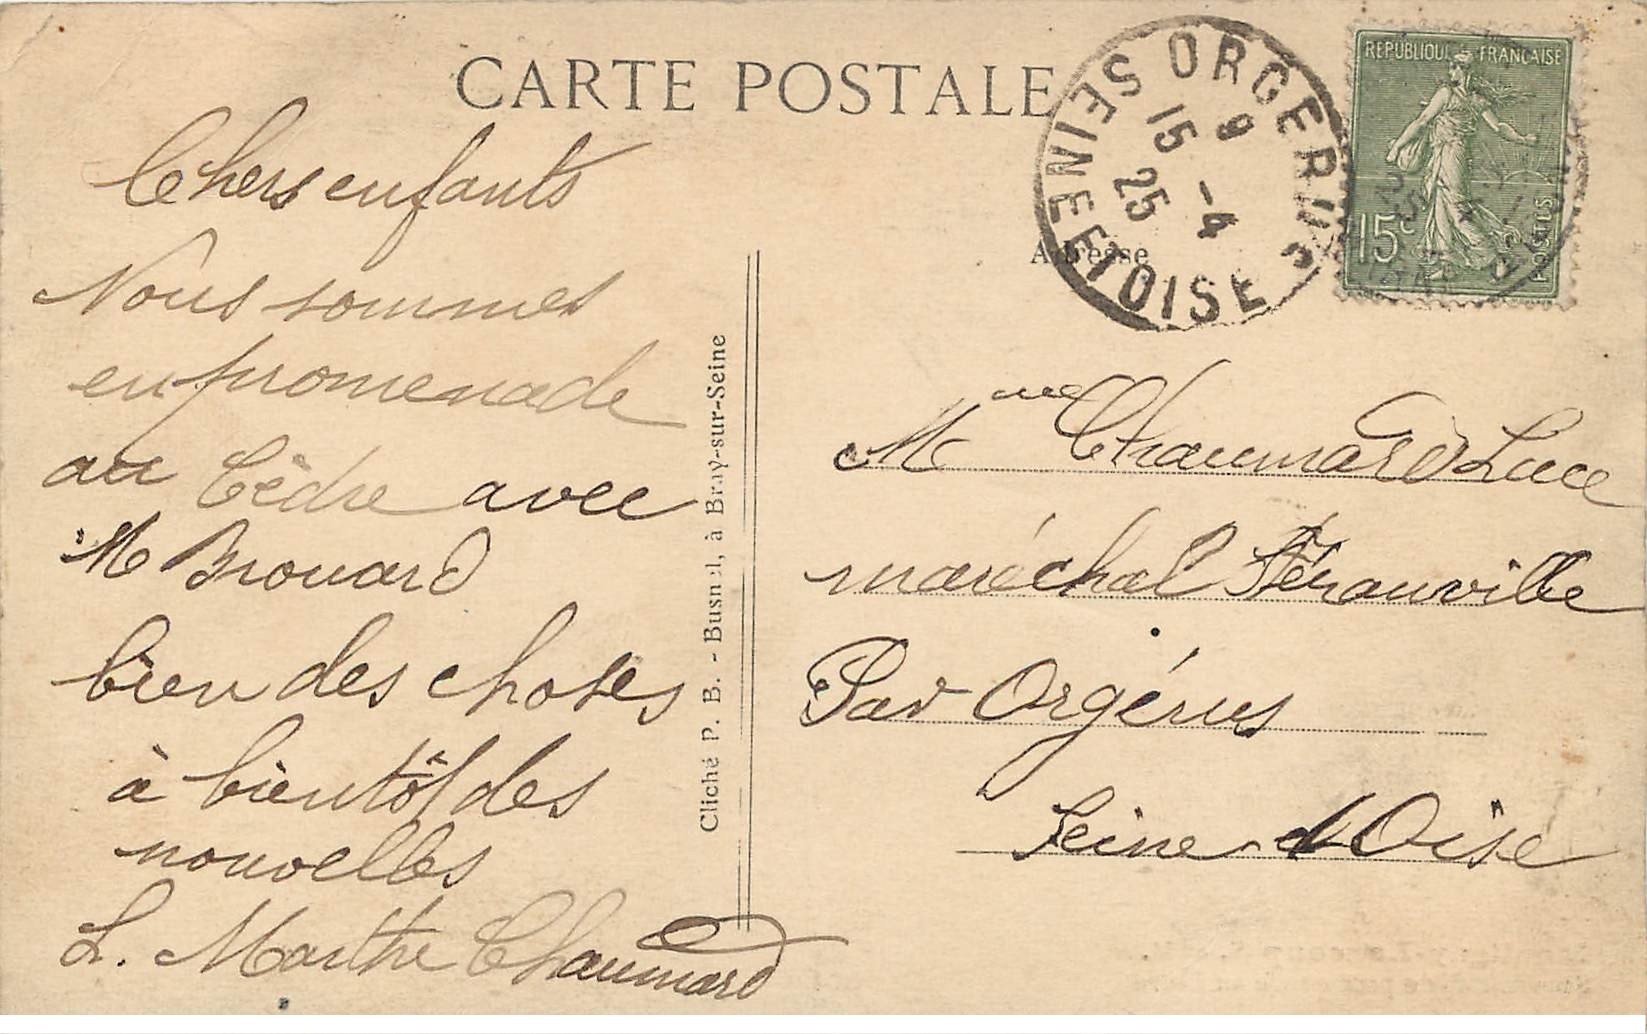 CARTE POSTALE
Chers enfants
Nous sommes
en promenade
au Cèdre avec
M Brouard
bien des choses
à bientôt des
nouvelles
L. Marthe Chaumard
Cliché P. B. - Busnel, à Bray-sur-Seine
ORGERUS
SEINE ET OISE
9
15 -4
25
REPUBLIQUE FRANÇAISE
15c
POSTES
Adresse
Mme Chaumard Luce
maréchal
Par Orgérus
Seine et Oise